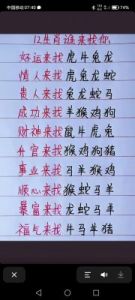 中国移动 07:40
12生肖谁来找你
好运来找虎牛兔龙
情人来找龙兔蛇
贵人来找兔龙蛇
成功来找羊猴鸡狗
财神来找鼠牛虎兔
升官来找猴鸡狗猪
事业来找马羊猴鸡
顺心来找猴蛇马羊
暴富来找龙蛇马羊
福气来找牛马羊猪